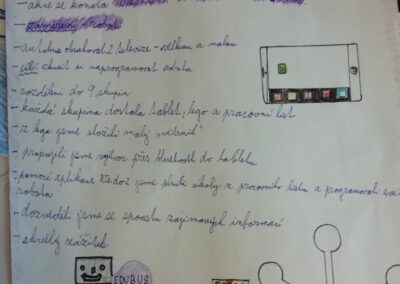 - akce se konala
- zaměřený - roboti
- autobus obsahoval 2 televize - velkou a malou
- cíl: zkusit si naprogramovat robota
- rozdělení do 9 skupin
- každá skupina dostala tablet, lego a pracovní list
- z lega jsme složili malý "větrník"
- propojili jsme výtvor přes bluetooth do tabletu
- pomocí aplikace jsme plnili úkoly ze pracovního listu a programovali
robota
- dozvěděli jsme se spoustu zajímavých informací
- skvělý zážitek
EDUBUS